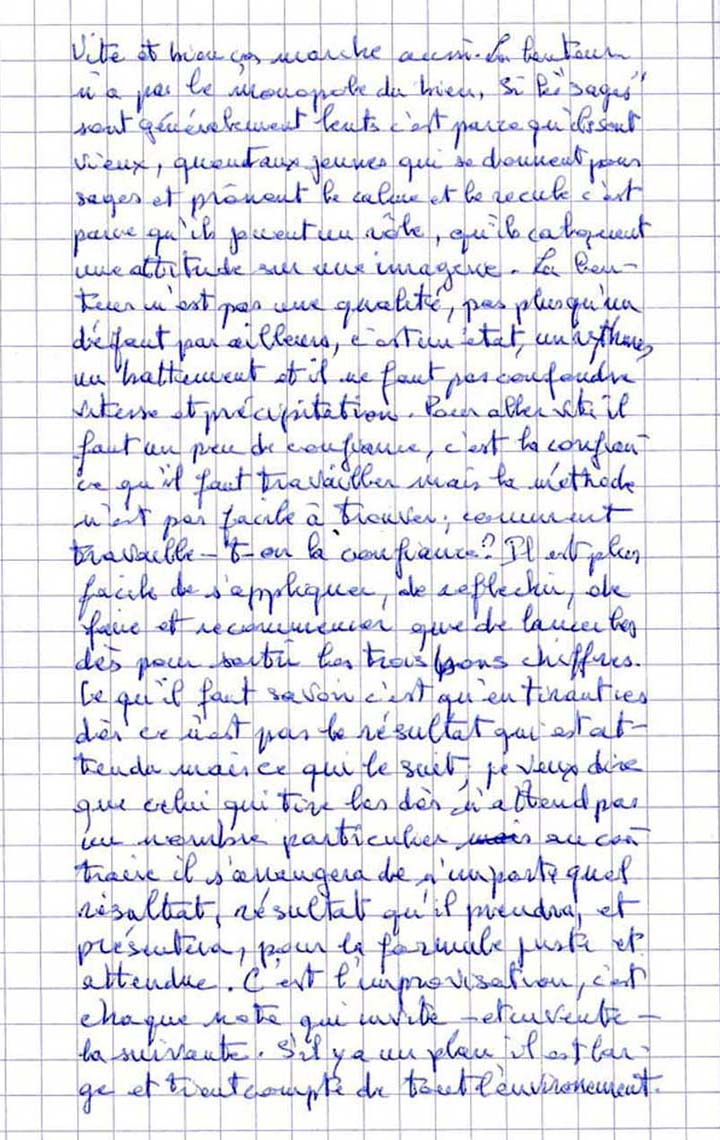 Vite et bien ça marche aussi. La lenteur
n'a pas le monopole du bien. Si les "sages"
sont généralement lents c'est parce qu'ils sont
vieux, quant aux jeunes qui se donnent pour
sages et prônent le calme et le recule c'est
parce qu'ils jouent un rôle, qu'ils calquent
une attitude sur une imagerie. La len-
teur n'est pas une qualité, pas plus qu'un
défaut par ailleurs, c'est un état, un rythme,
un battement et il ne faut pas confondre
vitesse et précipitation. Pour aller vite il
faut un peu de confiance, c'est la confian-
ce qu'il faut travailler mais la méthode
n'est pas facile à trouver; comment
travaille-t-on la confiance? Il est plus
facile de s'appliquer, de reflechir, de
faire et recommencer que de lancer les
dès pour sortir les trois bons chiffres.
Ce qu'il faut savoir c'est qu'en tirant ces
dès ce n'est pas le résultat qui est at-
tendu mais ce qui le suit, je veux dire
que celui qui tire les dès n'attend pas
un nombre particulier mais au con-
traire il s'arrangera de n'importe quel
résultat, résultat qu'il prendra, et
présentera, pour la formule juste et
attendue. C'est l'improvisation, c'est
chaque note qui invite - et invente -
la suivante. S'il y a un plan il est lar-
ge et tient compte de tout l'environement.